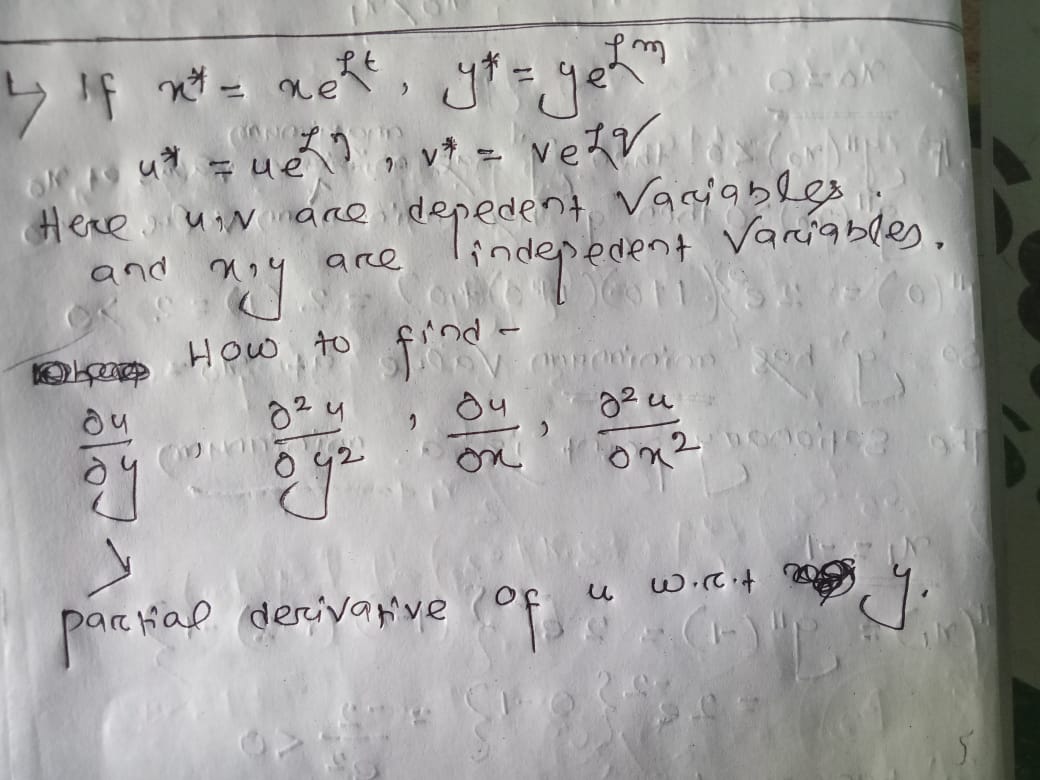 ↳ If x* = xe^{£t}, y* = ye^{£m}
u* = ue^{£η}, v* = ve^{£q}
Here u,v are depedent Variables.
and x,y are indepedent Variables.
How to find -
∂u/∂y, ∂²u/∂y², ∂u/∂x, ∂²u/∂x²
↓
partial derivative of u w.r.t y.